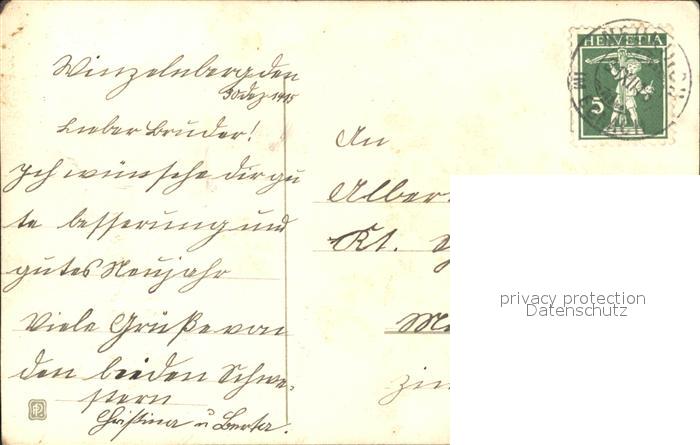 Winzelnberg den
30 Dez 1915
Lieber Bruder!
Ich wünsche dir gu
te besserung und
gutes Neujahr
Viele Grüße von
den beiden Schwe-
stern
Christina u Berta.
An
Alber
Kt.
HELVETIA
5
privacy protection
Datenschutz